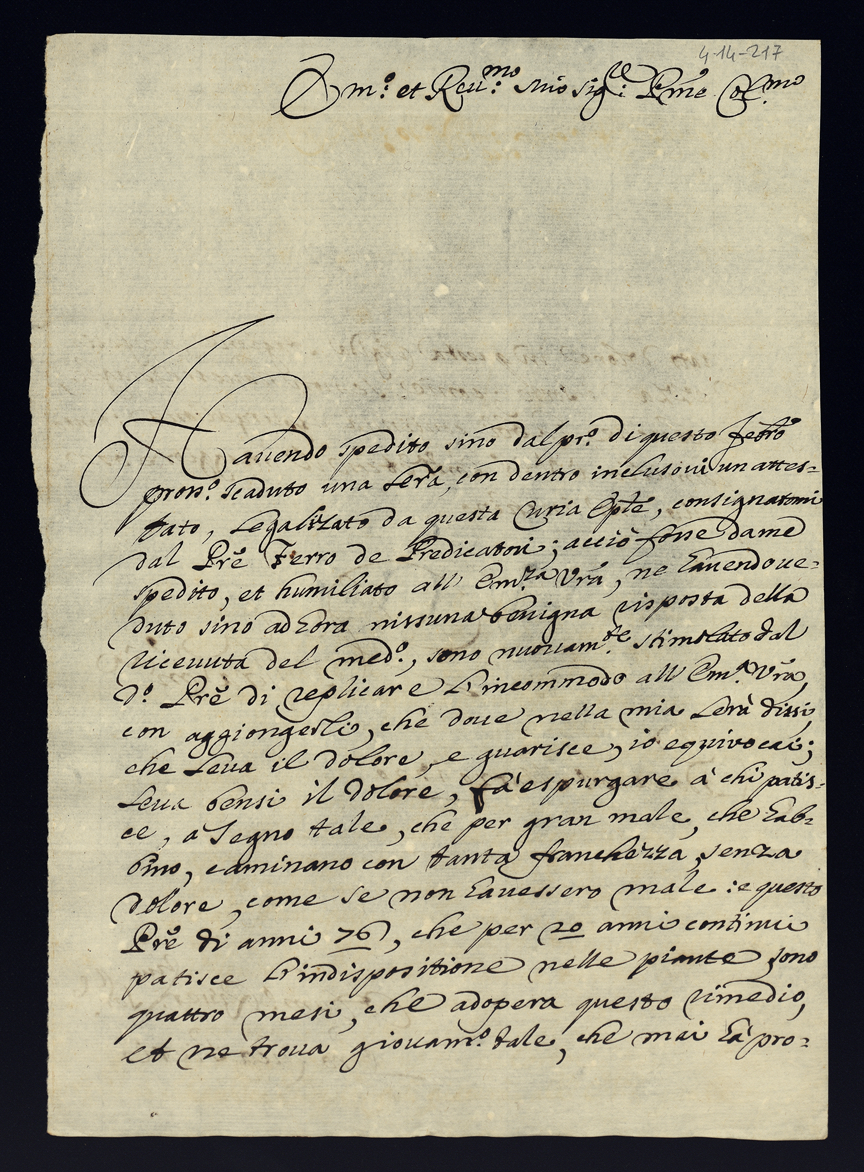 4-14-217
Em.o et Reu.mo mio Sig.re P.rone Col.mo
Hauendo spedito sino dal pr.o di questo febro
pross.o scaduto una Lera, con dentro inclusoui un attes=
tato, Legalizato da questa Curia Eple, consignatomi
dal Pre Ferro de Predicatori; acciò fosse da me
spedito, et humiliato all' Em.za Vra, ne hauendo ue=
duto sino adhora nissuna benigna risposta della
riceuuta del med.o, sono nuouam.te stimolato dal
d.o Pre di replicare L'incommodo all' Em.a Vra,
con aggiongerli, che doue nella mia Lera dissi,
che Leua il dolore, e guarisce, io equiuocai;
Leua bensi il dolore, fà espurgare à chi patis=
ce, a segno tale, che per gran male, che hab=
bino, caminano con tanta franchezza, senza
dolore, come se non hauessero male: e questo
Pre di anni 76, che per 20 anni continui
patisce L'indispositione nelle piante, sono
quattro mesi, che adopera questo rimedio,
et ne troua giouam.o tale, che mai hà pro=